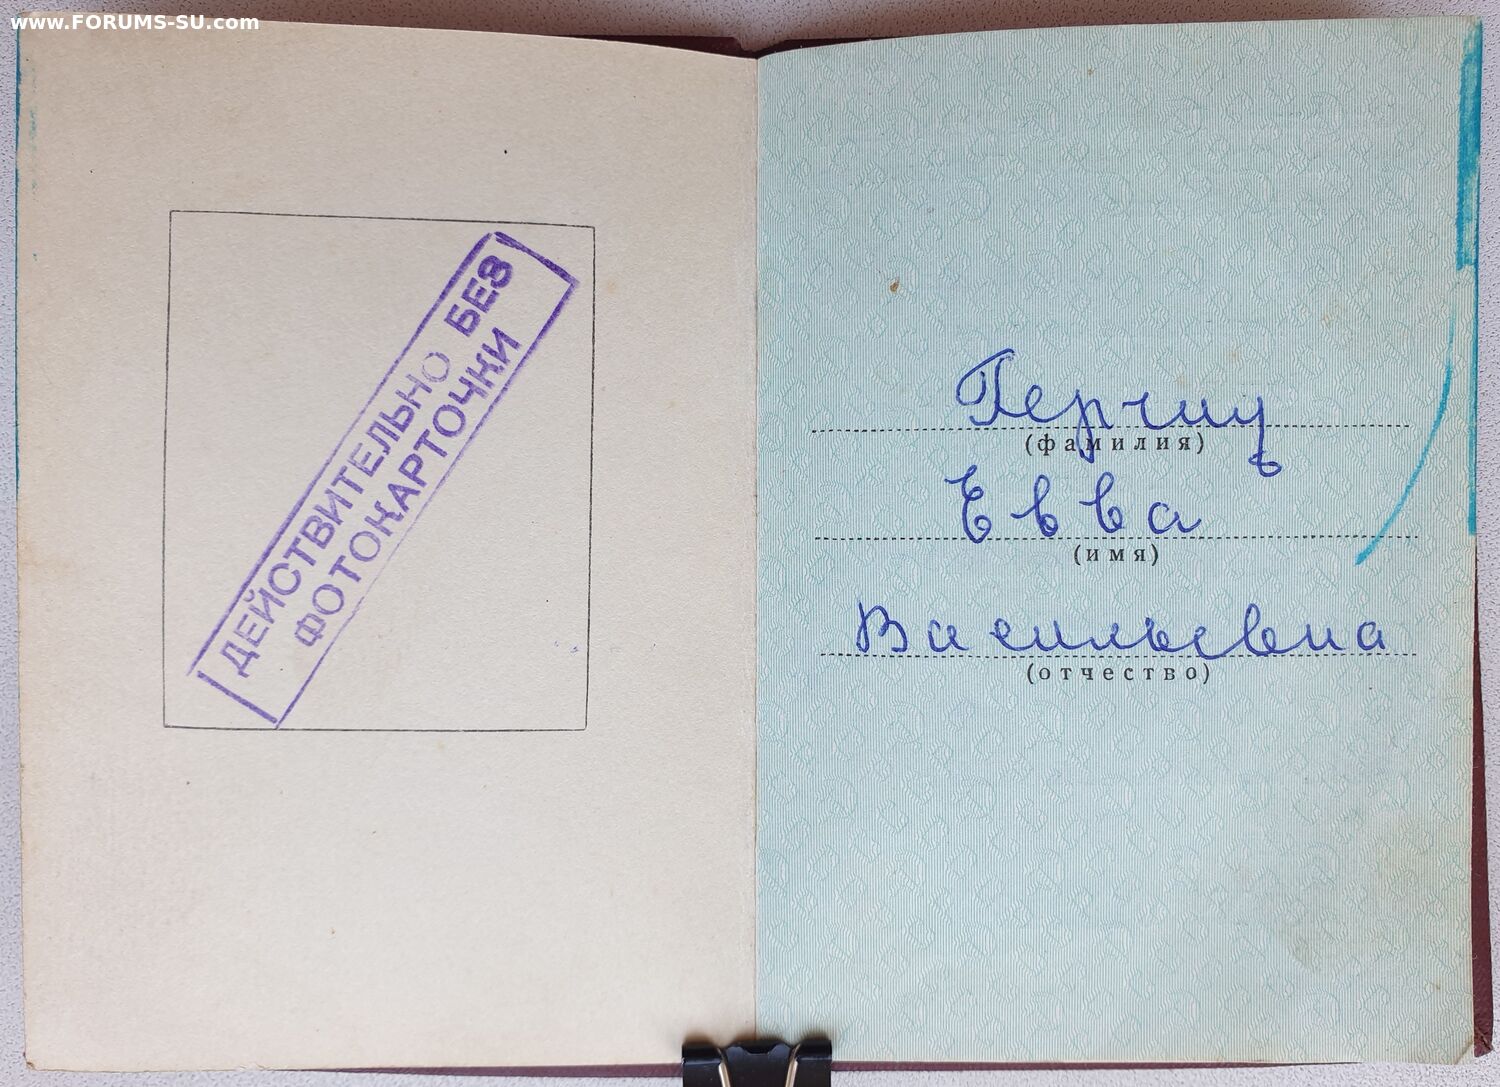 www.FORUMS-SU.com
ДЕЙСТВИТЕЛЬНО БЕЗ
ФОТОКАРТОЧКИ
Герчиц
(фамилия)
Евва
(имя)
Васильевна
(отчество)